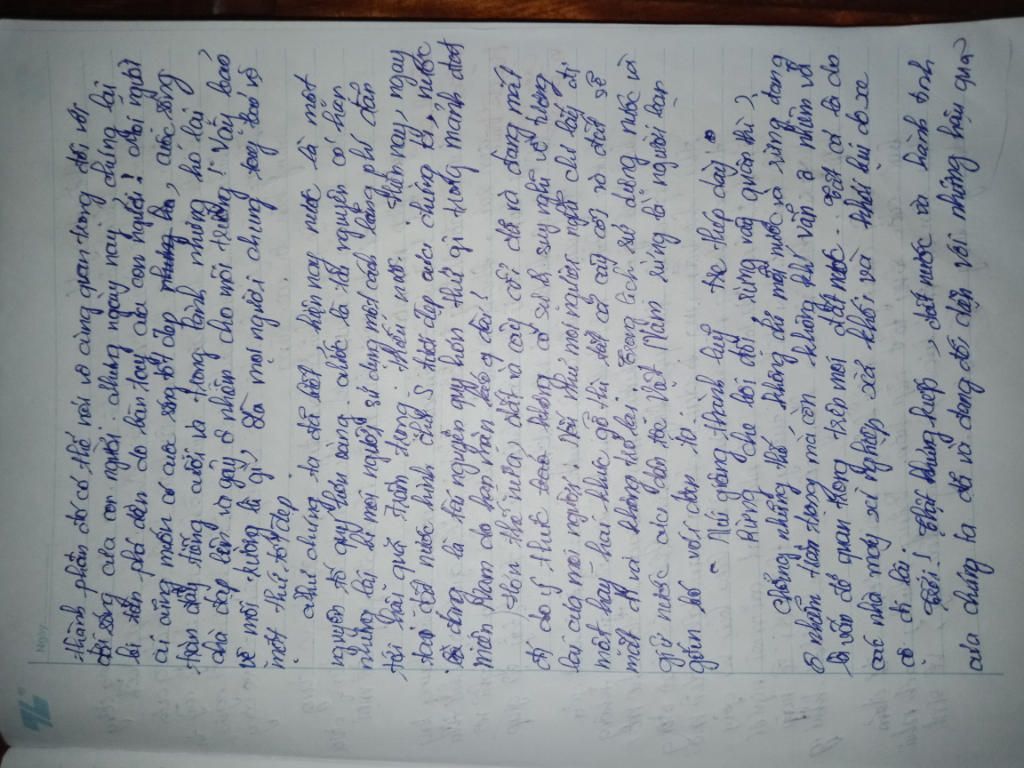 Ngày
thành phần đó có thể nói vô cùng quan trọng đối với
đời sống của con người. Nhưng ngày nay chúng lại
bị tàn phá đến do bàn tay của con người! Mỗi người
ai cũng muốn có cuộc sống tốt đẹp, cuộc sống
tràn đầy tiếng cười và trong lành nhưng họ lại
chà đạp lên và gây ô nhiễm cho môi trường! Vậy bảo
vệ môi trường là gì, Là mọi người chung tay bảo vệ
một thế tốt đẹp.
Như chúng ta đã biết hiện nay nước là một
nguồn tố quý hiếm vàng nước là tài nguyên có hạn
nhưng lại bị mọi người sử dụng một cách lãng phí dẫn
tới hậu quả trầm trọng: thiếu nước. Hiện nay, ngay
tại đất nước hình chữ S tươi đẹp của chúng ta, nước
đang là tài nguyên quý hơn thứ gì trong mảnh đất
miền Nam do hạn hán kéo dài!
Hơn thế nữa, đất và cây cối đã và đang mất
đi do ý thức không có sự suy nghĩ về tương
lai của mọi người. Nếu như mọi người nghĩ chỉ lấy đi
một hay hai khúc gỗ thì tất cả cây cối và đất sẽ
mất đi và không trở lại. Trong lịch sử dựng nước và
giữ nước của dân tộc Việt Nam rừng là người bạn
gắn bó với dân tội
" Núi giăng thành lũy sắt dày
Rừng che bộ đội rừng vây quân thù",
Chẳng những thế không chỉ mỗi nước và rừng đang
ô nhiễm trầm trọng mà còn không khí vẫn ô nhiễm với
là vấn đề quan trọng trên mọi đất nước. Tất cả là do
các nhà máy xí nghiệp xả khói và khói bụi do xe
cộ đi lại.
Ôi! Thật khủng khiếp, đất nước và hành tinh
của chúng ta đã và đang đối diện với những hậu quả